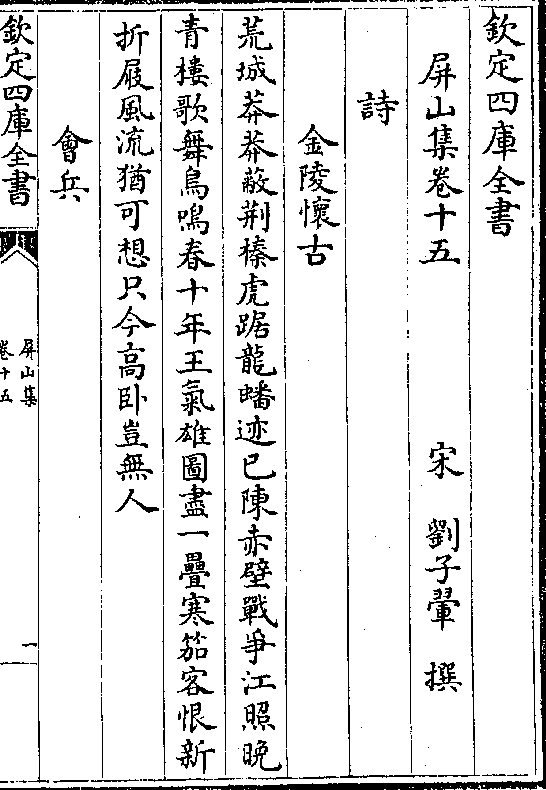 欽定四庫全書
屏山集卷十五　宋　劉子翬　撰
詩
金陵懷古
荒城莽莽蔽荆榛虎踞龍蟠迹已陳赤壁戰爭江照晩
青樓歌舞鳥鳴春十年王氣雄圖盡一疊寒笳客恨新
折屐風流猶可想只今高卧豈無人
會兵
欽定四庫全書
屏山集
卷十五
一